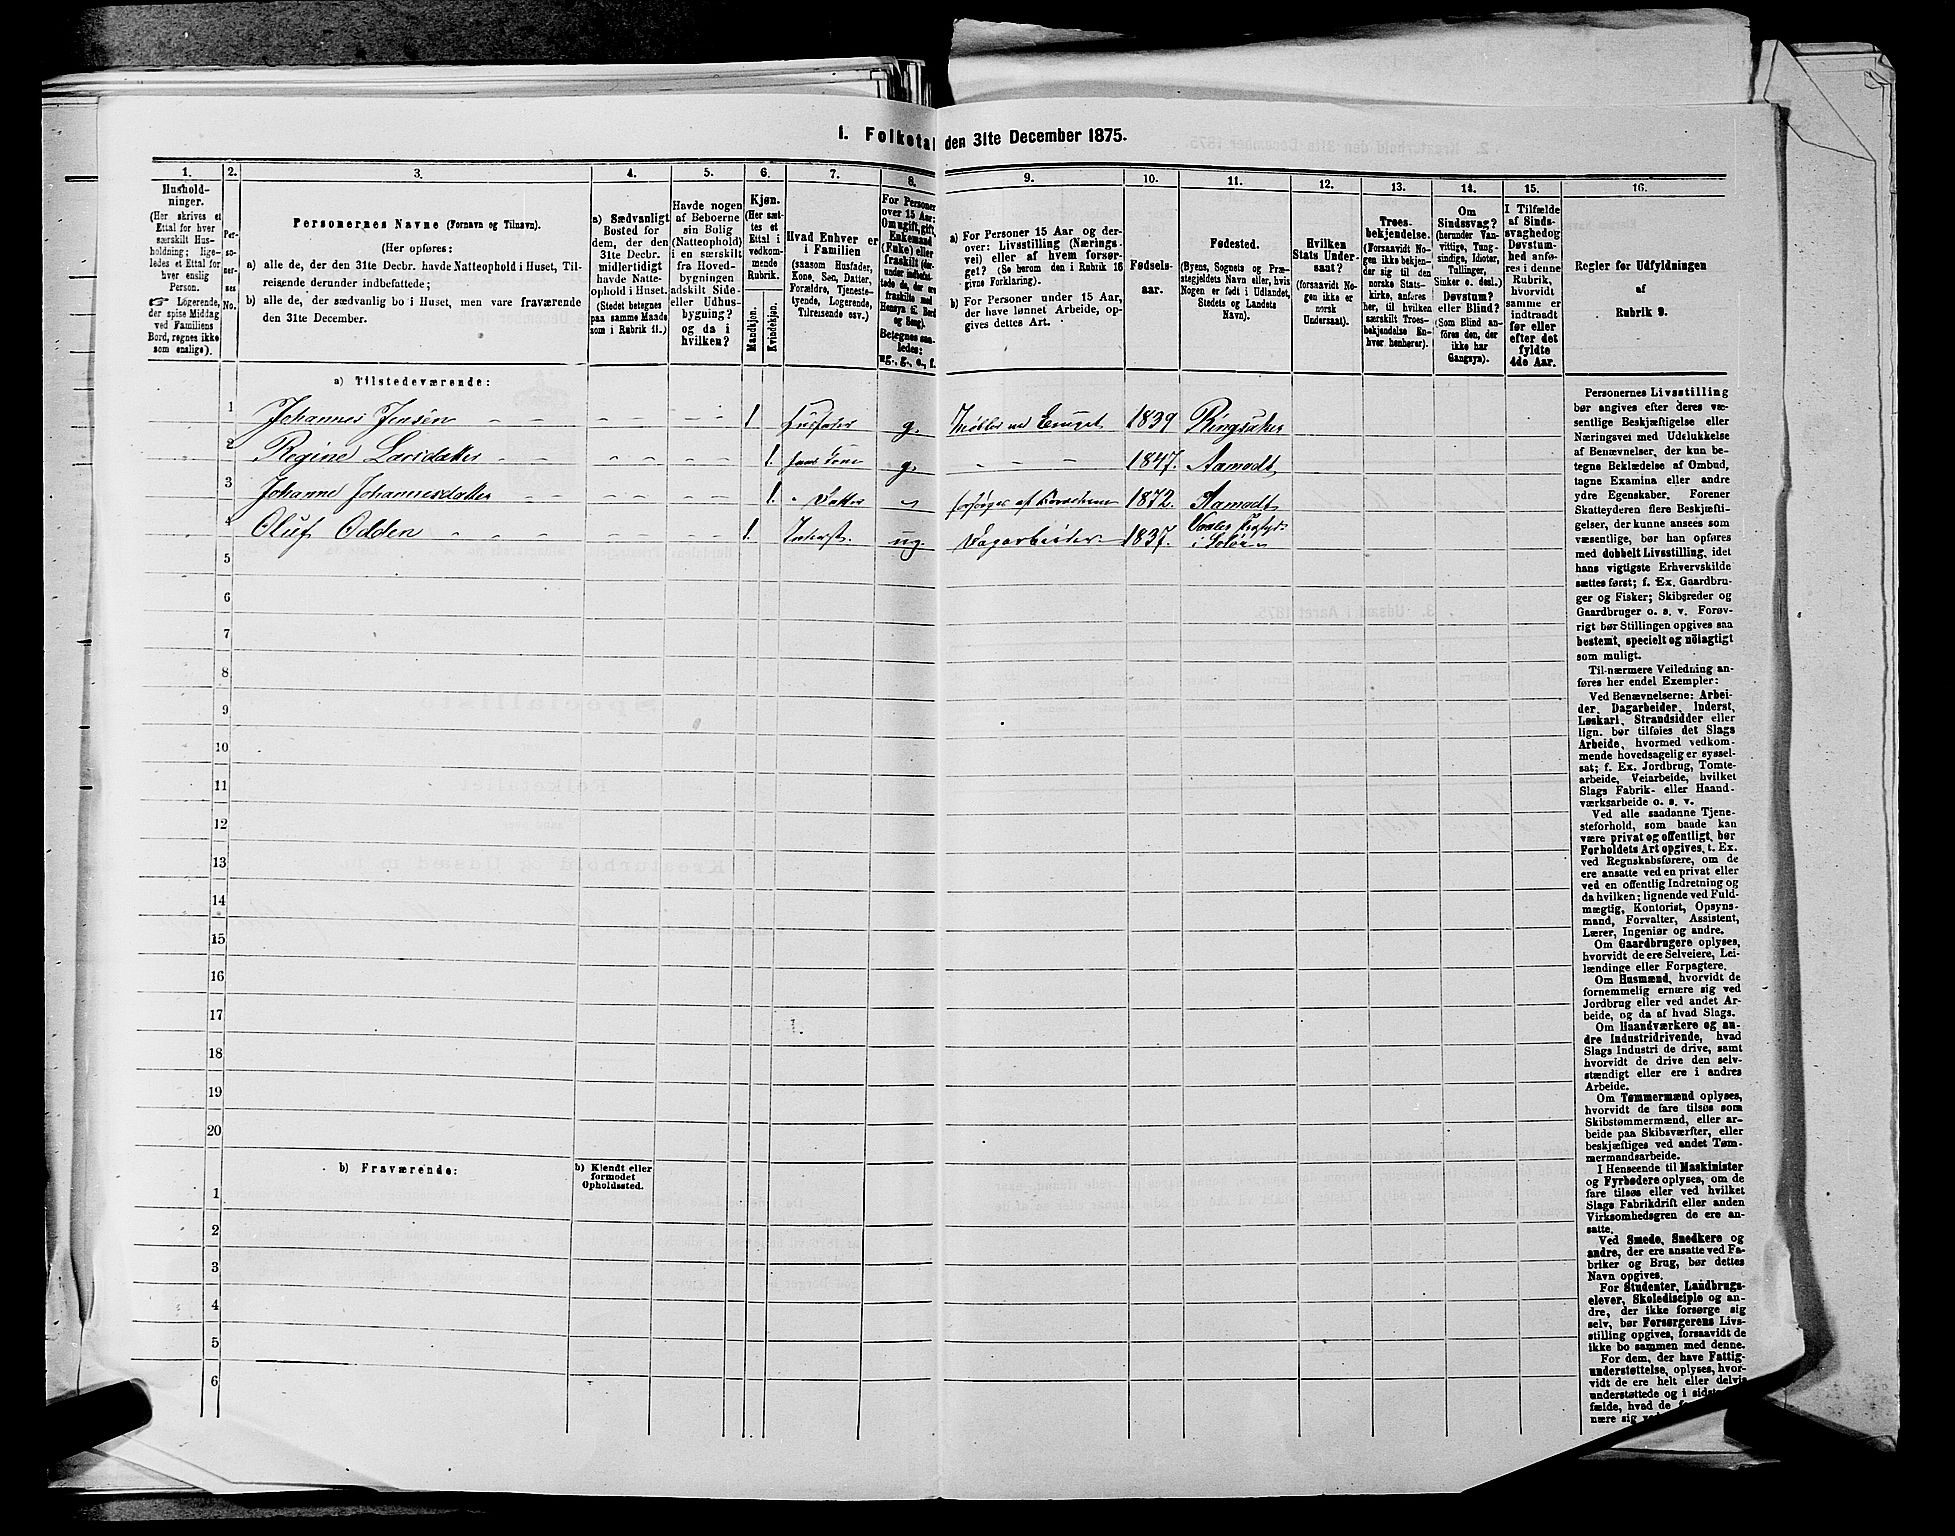 1. Folketal den 31te December 1875.
1.
Hushold-
ninger.
(Her skrives et
Ettal for hver
særskilt Hus-
holdning; lige-
ledes et Ettal for
hver enslig
Person.
☞ Logerende,
der spise Middag
ved Familiens
Bord, regnes ikke
som enslige).
2.
Per-
so-
ner-
nes
No.
3.
Personernes Navne (Fornavn og Tilnavn).
(Her opføres:
a) alle de, der den 31te Decbr. havde Natteophold i Huset, Til-
reisende derunder indbefattede;
b) alle de, der sædvanlig bo i Huset, men vare fraværende
den 31te December.
4.
a) Sædvanligt
Bosted for
dem, der den
31te Decbr.
midlertidigt
havde Natte-
ophold i Huset.
(Stedet betegnes
paa samme Maade
som i Rubrik 11.)
5.
Havde nogen
af Beboerne
sin Bolig
(Natteophold)
i en særskilt
fra Hoved-
bygningen
adskilt Side-
eller Udhus-
bygning?
og da i
hvilken?
6.
Kjøn.
(Her sæt-
tes et
Ettal i
vedkom-
mende
Rubrik.
Mandkjøn.
Kvindekjøn.
7.
Hvad Enhver er
i Familien
(saasom Husfader,
Kone, Søn, Datter,
Forældre, Tjeneste-
tyende, Logerende,
Tilreisende osv.)
8.
For Personer
over 15 Aar:
Om ugift, gift,
Enkemand
(Enke) eller
fraskilt
Betegnes saa-
ledes:
ug., g., e., f.
9.
a) For Personer 15 Aar og der-
over: Livsstilling (Nærings-
vei) eller af hvem forsør-
get? (Se herom den i Rubrik 16
givne Forklaring).
b) For Personer under 15 Aar,
der have lønnet Arbeide, op-
gives dettes Art.
10.
Fødsels-
aar.
11.
Fødested.
(Byens, Sognets og Præ-
stegjeldets Navn eller, hvis
Nogen er født i Udlandet,
Stedets og Landets
Navn).
12.
Hvilken
Stats Under-
saat?
(forsaavidt No-
gen ikke er
norsk
Undersaat).
13.
Troes-
bekjendelse.
(Forsaavidt No-
gen ikke bekjen-
der sig til den
norske Stats-
kirke, anføres
her, til hvilken
særskilt Troes-
bekjendelse En-
hver henhører).
14.
Om
Sindssvag?
(herunder Van-
vittige, Tung-
sindige, Idioter,
Tullinger,
Sinker o. desl.)
Døvstum?
eller Blind?
(Som Blind an-
føres den, der
ikke har
Gangsyn).
15.
I Tilfælde
af Sinds-
svaghed og
Døvstum-
hed anfø-
res i denne
Rubrik,
hvorvidt
samme er
indtraadt
før eller
efter det
fyldte
4de Aar.
16.
Regler for Udfyldningen
af
Rubrik 9.
a) Tilstedeværende:
1 Johannes Jensen - - - - - - 1 Husfader g. 1839 Ringsaker
2 Regine Larsdatter - - - - - - 1. hans Kone g. - - - 1847. Aamodt
3 Johanne Johannesdatter - - - - - - 1. " Datter forsørges af Forældrene 1872. Aamodt
4 Oluf Odden - - - - - - 1. Inderst. ug. Dagarbeider 1837. Vaaler Prstgjd.
i Solør
5
6
7
8
9
10
11
12
13
14
15
16
17
18
19
20
b) Fraværende:
b) Kjendt eller
formodet
Opholdssted.
1
2
3
4
5
6
Personernes Livsstilling
bør angives efter deres væ-
sentlige Beskjæftigelse eller
Næringsvei med Udelukkelse
af Benævnelser, der kun be-
tegne Beklædelse af Ombud,
tagne Examina eller andre
ydre Egenskaber. Forener
Skatteyderen flere Beskjæfti-
gelser, der kunne ansees som
væsentlige, bør han opføres
med dobbelt Livsstilling, idet
hans vigtigste Erhvervskilde
sættes først; f. Ex. Gaardbru-
ger og Fisker; Skibsreder og
Gaardbruger o. s. v. Forøv-
rigt bør Stillingen opgives saa
bestemt, specielt og nøiagtigt
som muligt.
Til nærmere Veiledning an-
føres her endel Exempler:
Ved Benævnelserne: Arbei-
der, Dagarbeider, Inderst,
Løskarl, Strandsidder eller
lign. bør tilføies det Slags
Arbeide, hvormed vedkom-
mende hovedsagelig er syssel-
sat; f. Ex. Jordbrug, Tomte-
arbeide, Veiarbeide, hvilket
Slags Fabrik- eller Haand-
værksarbeide o. s. v.
Ved alle saadanne Tjene-
steforhold, som baade kan
være privat og offentligt, bør
Forholdets Art opgives, t. Ex.
ved Regnskabsførere, om de
ere ansatte ved en privat eller
ved en offentlig Indretning og
da hvilken; lignende ved Fuld-
mægtig, Kontorist, Opsyns-
mand, Forvalter, Assistent,
Lærer, Ingeniør og andre.
Om Gaardbrugere oplyses,
hvorvidt de ere Selveiere, Lei-
lændinge eller Forpagtere.
Om Husmænd, hvorvidt de
fornemmelig ernære sig ved
Jordbrug eller ved andet Ar-
beide, og da af hvad Slags.
Om Haandværkere og an-
dre Industridrivende, hvad
Slags Industri de drive, samt
hvorvidt de drive den selv-
stændigt eller ere i andres
Arbeide.
Om Tømmermænd oplyses,
hvorvidt de fare tilsøs som
Skibstømmermænd, eller ar-
beide paa Skibsværfter, eller
beskjæftiges ved andet Tøm-
mermandsarbeide.
I Henseende til Maskinister
og Fyrbødere oplyses, om de
fare tilsøs eller ved hvilket
Slags Fabrikdrift eller anden
Virksomhedsgren de ere an-
satte.
Ved Smede, Snedkere og
andre, der ere ansatte ved Fa-
briker og Brug, bør dettes
Navn opgives.
For Studenter, Landbrugs-
elever, Skoledisciple og an-
dre, der ikke forsørge sig
selv, bør Forsørgerens Livs-
stilling opgives, forsaavidt de
ikke bo sammen med denne.
For dem, der have Fattig-
understøttelse, oplyses, hvor-
vidt de ere helt eller delvis
understøttede og i sidste
fælde, hvad de
nære sig